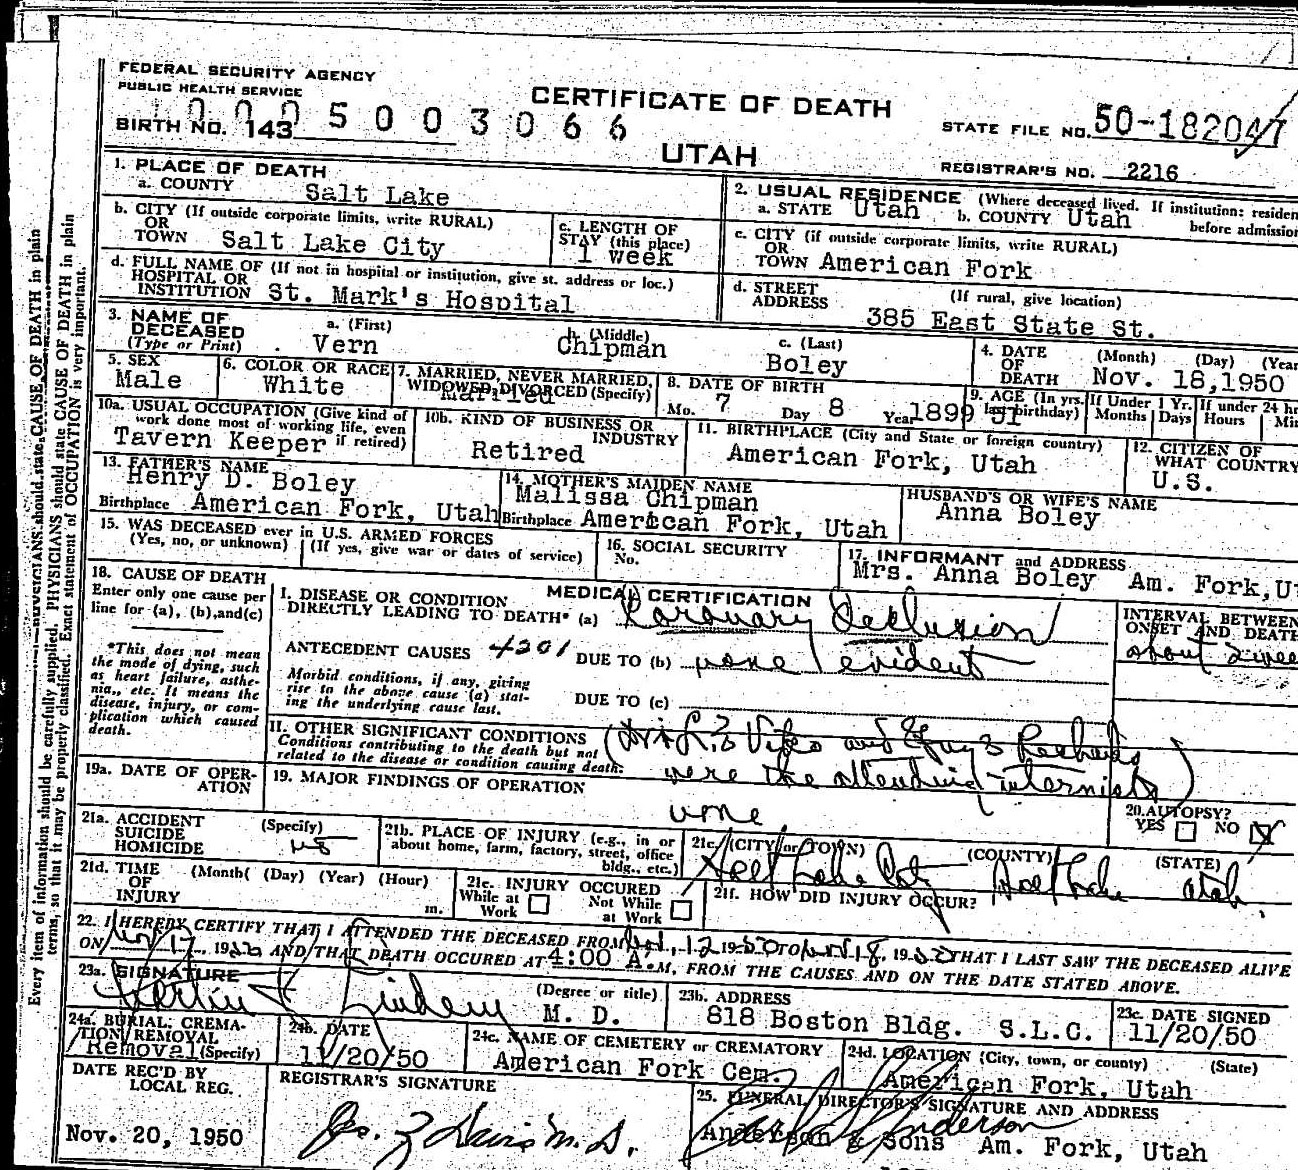 FEDERAL SECURITY AGENCY
PUBLIC HEALTH SERVICE
CERTIFICATE OF DEATH
STATE FILE NO. 50-182047
BIRTH NO. 143
0005003066
UTAH
REGISTRAR'S NO. 2216
1. PLACE OF DEATH
a. COUNTY Salt Lake
2. USUAL RESIDENCE (Where deceased lived. If institution: residen
a. STATE Utah b. COUNTY Utah before admission
b. CITY (If outside corporate limits, write RURAL)
OR
TOWN Salt Lake City
c. LENGTH OF
STAY (this place)
1 week
c. CITY (if outside corporate limits, write RURAL)
OR
TOWN American Fork
d. FULL NAME OF (If not in hospital or institution, give st. address or loc.)
HOSPITAL OR
INSTITUTION St. Mark's Hospital
d. STREET (If rural, give location)
ADDRESS 385 East State St.
3. NAME OF
DECEASED
(Type or Print)
a. (First)
Vern
b. (Middle)
Chipman
c. (Last)
Boley
4. DATE (Month) (Day) (Year
OF
DEATH Nov. 18,1950
5. SEX
Male
6. COLOR OR RACE
White
7. MARRIED, NEVER MARRIED,
WIDOWED, DIVORCED (Specify)
Married
8. DATE OF BIRTH
Mo. 7 Day 8 Year 1899
9. AGE (In yrs.
last birthday)
51
If Under 1 Yr.
Months Days
If under 24 hr
Hours Min
10a. USUAL OCCUPATION (Give kind of
work done most of working life, even
if retired)
Tavern Keeper
10b. KIND OF BUSINESS OR
INDUSTRY
Retired
11. BIRTHPLACE (City and State or foreign country)
American Fork, Utah
12. CITIZEN OF
WHAT COUNTRY
U.S.
13. FATHER'S NAME
Henry D. Boley
Birthplace American Fork, Utah
14. MOTHER'S MAIDEN NAME
Malissa Chipman
Birthplace American Fork, Utah
HUSBAND'S OR WIFE'S NAME
Anna Boley
15. WAS DECEASED ever in U.S. ARMED FORCES
(Yes, no, or unknown) (If yes, give war or dates of service)
16. SOCIAL SECURITY
No.
17. INFORMANT and ADDRESS
Mrs. Anna Boley Am. Fork, Ut
18. CAUSE OF DEATH
Enter only one cause per
line for (a), (b), and (c)
*This does not mean
the mode of dying, such
as heart failure, asthe-
nia, etc. It means the
disease, injury, or com-
plication which caused
death.
MEDICAL CERTIFICATION
I. DISEASE OR CONDITION
DIRECTLY LEADING TO DEATH* (a) Coronary Occlusion
INTERVAL BETWEEN
ONSET AND DEATH
about 2 wee
ANTECEDENT CAUSES 4201
DUE TO (b) none evident
Morbid conditions, if any, giving
rise to the above cause (a) stat-
ing the underlying cause last.
DUE TO (c)
II. OTHER SIGNIFICANT CONDITIONS
Conditions contributing to the death but not
related to the disease or condition causing death.
were the attending internists)
19a. DATE OF OPER-
ATION
19. MAJOR FINDINGS OF OPERATION
none
20. AUTOPSY?
YES NO
21a. ACCIDENT
SUICIDE
HOMICIDE
(Specify)
no
21b. PLACE OF INJURY (e.g., in or
about home, farm, factory, street, office
bldg., etc.)
21c. (CITY or TOWN) (COUNTY) (STATE)
Salt Lake City Salt Lake Utah.
21d. TIME (Month( (Day) (Year) (Hour)
OF
INJURY m.
21e. INJURY OCCURED
While at Not While
Work at Work
21f. HOW DID INJURY OCCUR?
22. I HEREBY CERTIFY THAT I ATTENDED THE DECEASED FROM Nov. 12 1950 TO Nov 18, 1950 THAT I LAST SAW THE DECEASED ALIVE
ON Nov 17, 1950 AND THAT DEATH OCCURED AT 4:00 A.M. FROM THE CAUSES AND ON THE DATE STATED ABOVE.
23a. SIGNATURE (Degree or title)
M. D.
23b. ADDRESS
818 Boston Bldg. S.L.C.
23c. DATE SIGNED
11/20/50
24a. BURIAL, CREMA-
TION, REMOVAL
Removal (Specify)
24b. DATE
11/20/50
24c. NAME OF CEMETERY or CREMATORY
American Fork Cem.
24d. LOCATION (City, town, or county) (State)
American Fork, Utah
DATE REC'D BY
LOCAL REG.
Nov. 20, 1950
REGISTRAR'S SIGNATURE
25. FUNERAL DIRECTOR'S SIGNATURE AND ADDRESS
Anderson & Sons Am. Fork, Utah
Every item of information should be carefully supplied. PHYSICIANS should state CAUSE OF DEATH in plain
terms, so that it may be properly classified. Exact statement of OCCUPATION is very important.